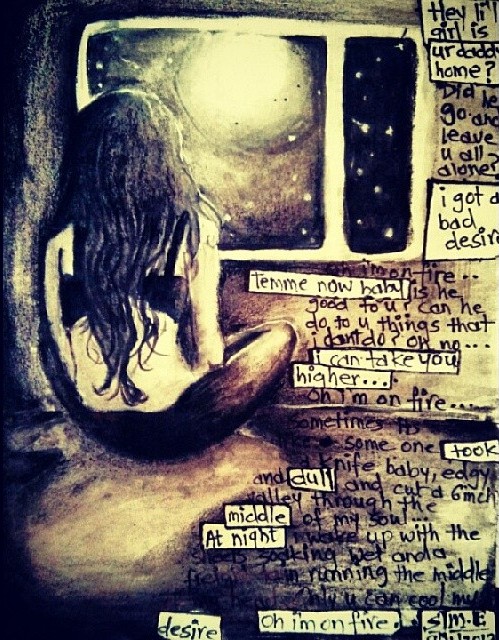 Hey lil
girl is
ur daddy
home?
Did he
go and
leave
u all
alone?
i got a
bad
desire
oh i'm on fire...
Temme now baby is he
good to u? can he
do to u things that
i dont do? oh no...
i can take you
higher...
oh i'm on fire...
sometimes its
some one took
a knife baby, edgy
and dull and cut a 6inch
valley through the
middle of my soul...
At night i wake up with the
soaking wet and a
running the middle
Only u can cool my
desire oh i'm on fire. S.M.E